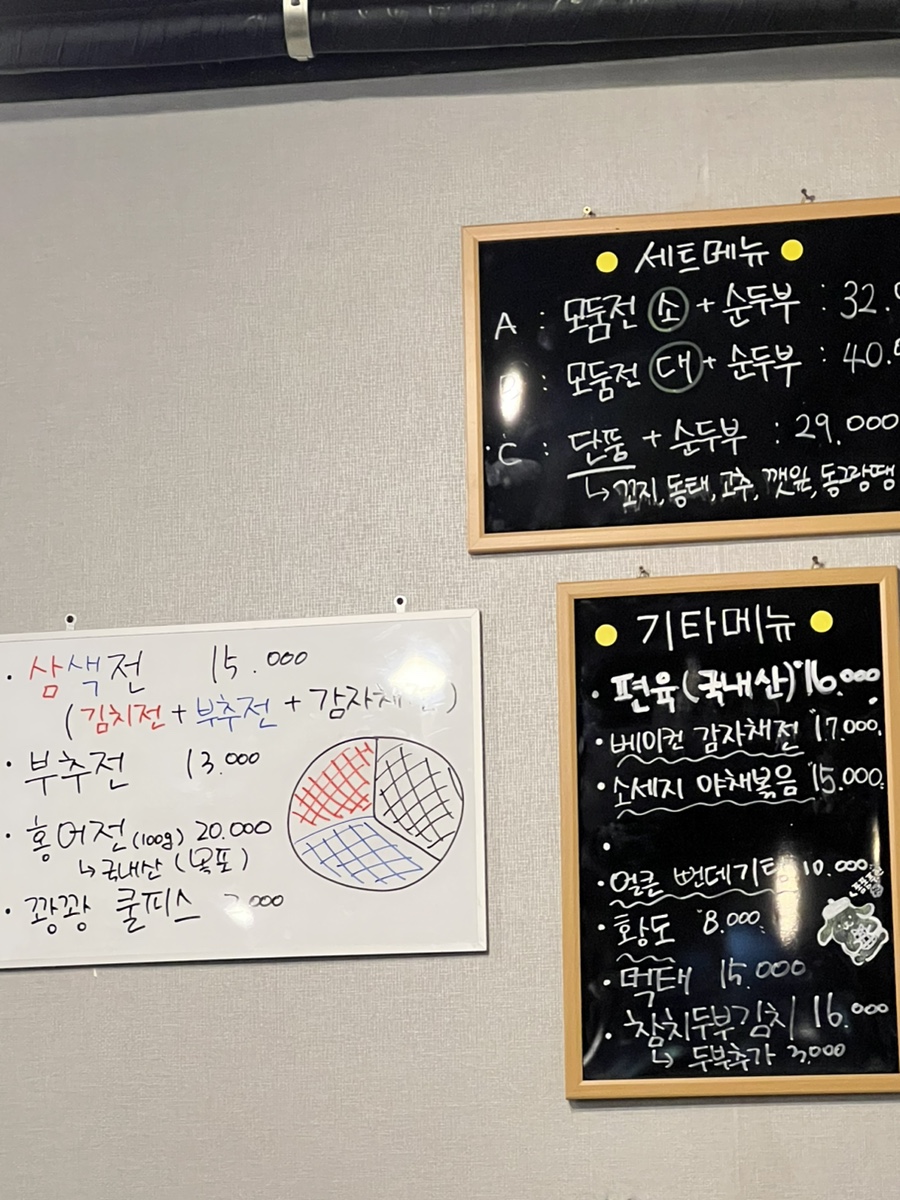 세트메뉴
A : 모둠전 소 + 순두부 : 32.
: 모둠전 대 + 순두부 : 40.
C : 단품 + 순두부 : 29.000
↳ 꼬지, 동태, 고추, 깻잎, 동그랑땡
기타메뉴
· 편육(국내산) 16.000
· 베이컨 감자채전 17.000
· 소세지 야채볶음 15.000
·
· 얼큰 뻔데기탕 10.000
· 황도 8.000
· 먹태 15.000
· 참치두부김치 16.000
↳ 두부추가 3,000
· 삼색전 15.000
(김치전 + 부추전 + 감자채전)
· 부추전 13.000
· 홍어전 (100g) 20.000
↳ 국내산 (목포)
· 꽝꽝 쿨피스